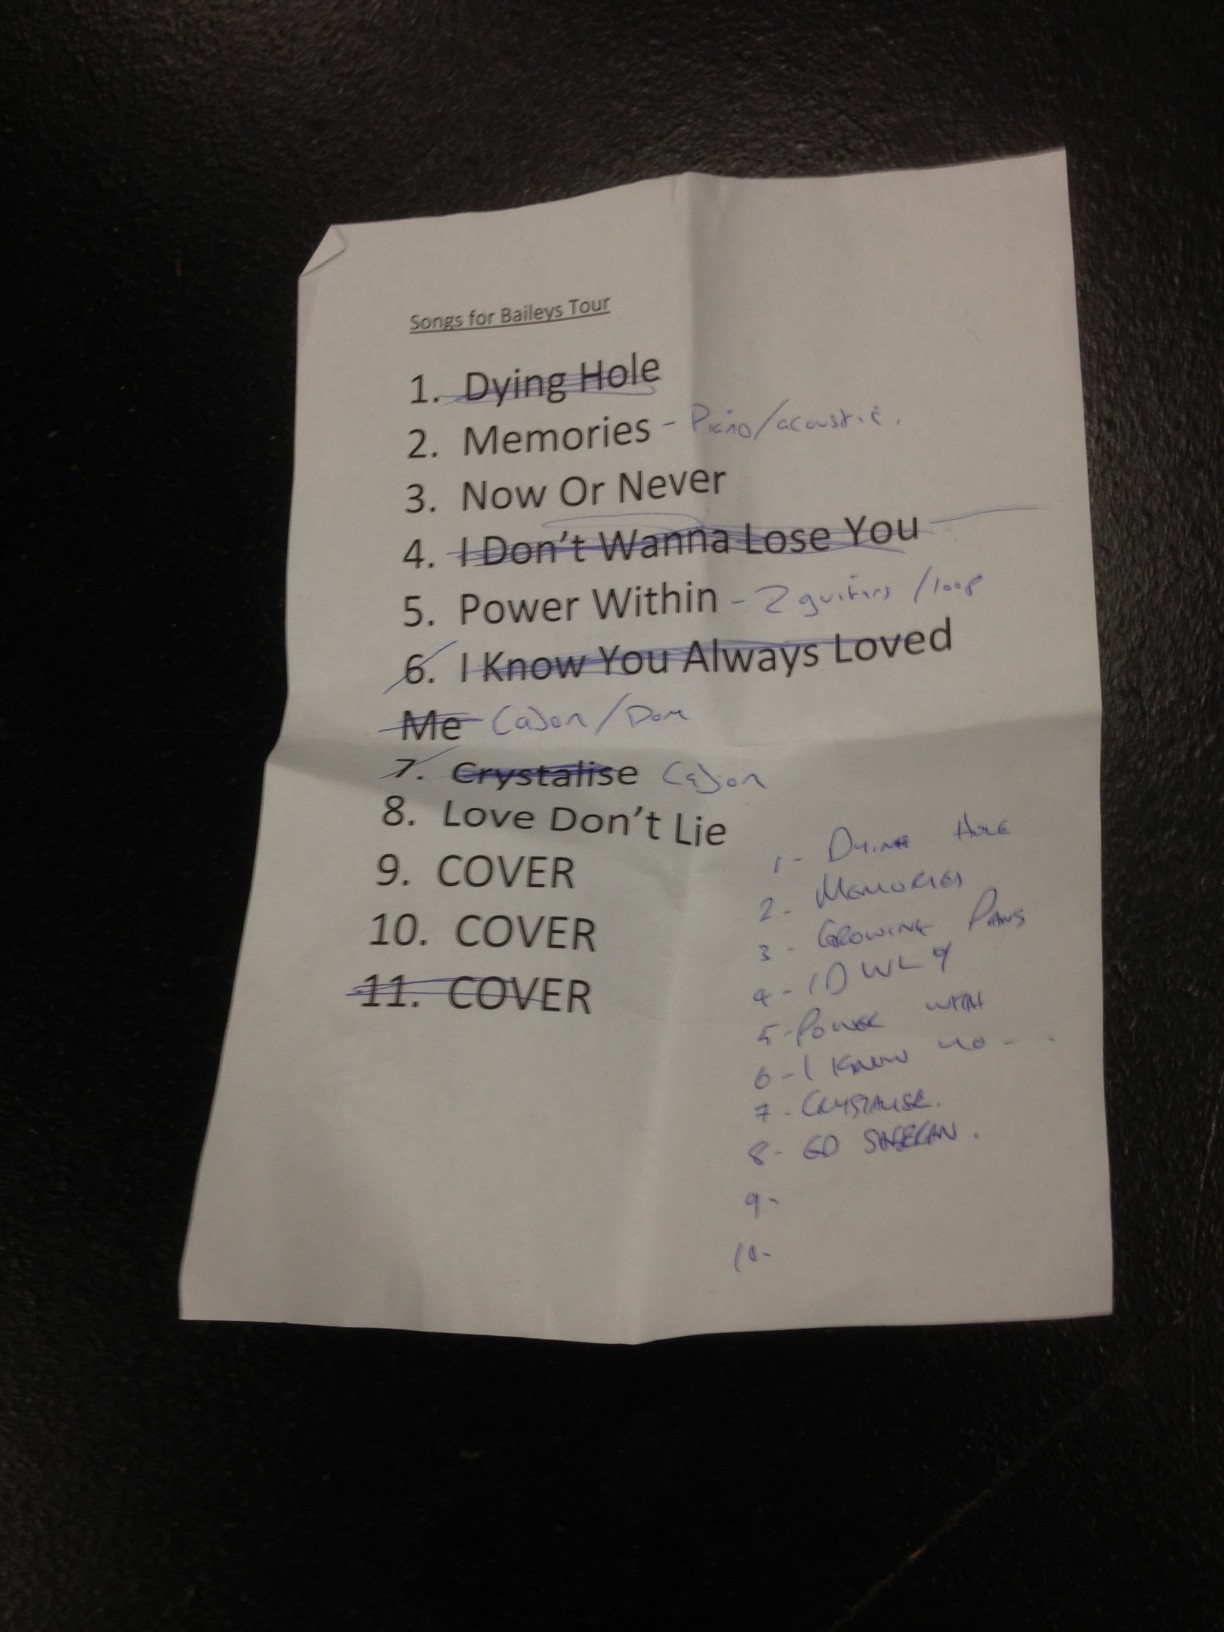 Songs for Baileys Tour
1. Dying Hole
2. Memories - Piano/acoustic.
3. Now Or Never
4. I Don't Wanna Lose You
5. Power Within - 2 guitars / loop
6. I Know You Always Loved
Me Cajon / Dom
7. Crystalise Cajon
8. Love Don't Lie
9. COVER
10. COVER
11. COVER
1 - DYING HOLE
2 - MEMORIES
3 - GROWING PAINS
4 - IDWLY
5 - POWER WITHIN
6 - I KNOW YO - - .
7 - CRYSTALISE.
8 - ED SHEERAN.
9 -
10 -